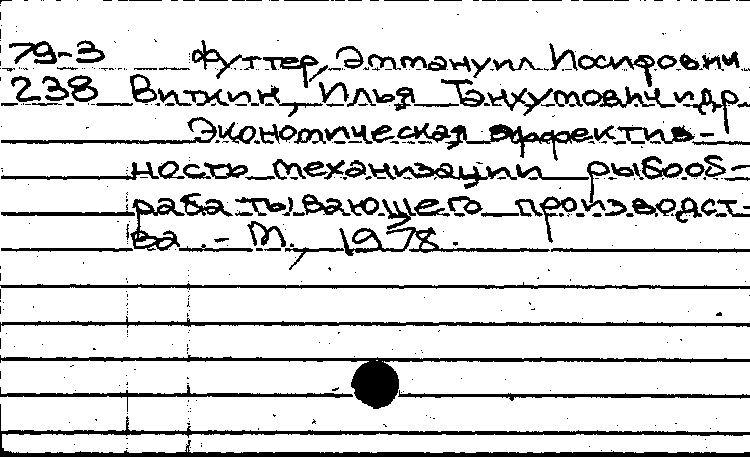 79-3 Футтер, Эммануил Иосифович
238 Виткин, Илья Танхумович и др.
Экономическая эффектив-
ность механизации рыбооб-
рабатывающего производст-
ва. - М., 1978.